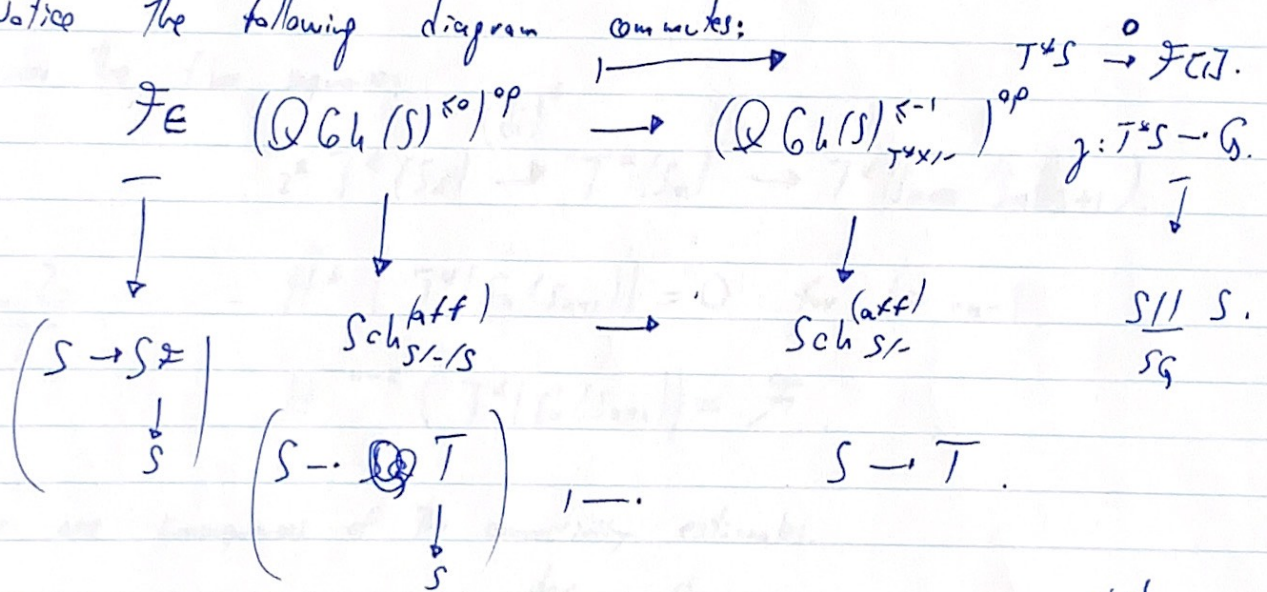 Notice the following diagram commutes:
T*S →^0 F[1].
F ∈ (QCoh(S)^{≤0})^{op} → (QCoh(S)^{≤-1}_{T*X/-})^{op} γ: T*S → G.
(S → S_F ↓ S) Sch^{(aff)}_{S/-/S} → Sch^{(aff)}_{S/-} S ⊔_{S_G} S.
(S → T ↓ S) ↦ S → T.